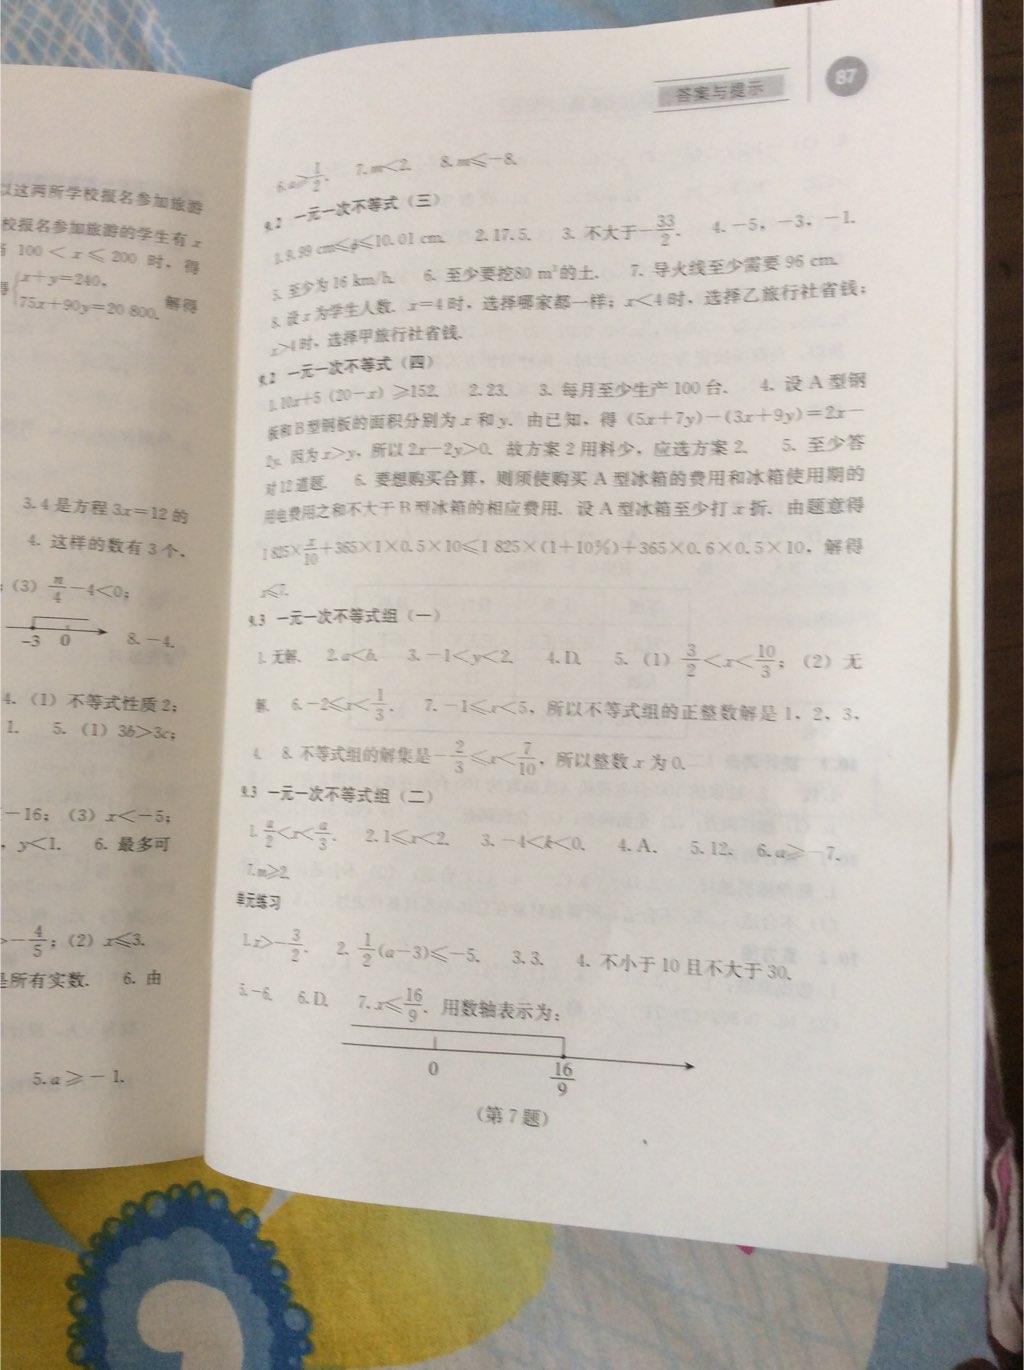 以这两所学校报名参加旅游
校报名参加旅游的学生有 x
当 100<x≤200 时，得
得{x+y=240,
75x+90y=20 800. 解得
3. 4 是方程 3x=12 的
4. 这样的数有 3 个，
；(3) -4<0；
-3 0 8. -4.
4. (1) 不等式性质 2；
1. 5. (1) 3b>3c；
-16；(3) x<-5；
，y<1. 6. 最多可
>-4/5；(2) x≤3.
是所有实数. 6. 由
5. a≥-1.
答案与提示 87
6. a≥1/2. 7. m<2. 8. m≤-8.
9.2 一元一次不等式（三）
1. 9.99 cm≤φ≤10.01 cm. 2. 17.5. 3. 不大于-33/2. 4. -5，-3，-1.
5. 至少为 16 km/h. 6. 至少要挖80 m³的土. 7. 导火线至少需要 96 cm.
8. 设 x 为学生人数. x=4 时，选择哪家都一样；x<4 时，选择乙旅行社省钱；
x>4 时，选择甲旅行社省钱.
9.2 一元一次不等式（四）
1. 10x+5（20-x）≥152. 2. 23. 3. 每月至少生产 100 台. 4. 设 A 型钢
板和 B 型钢板的面积分别为 x 和 y. 由已知，得（5x+7y）-（3x+9y）=2x-
2y. 因为 x>y，所以 2x-2y>0. 故方案 2 用料少，应选方案 2. 5. 至少答
对 12 道题. 6. 要想购买合算，则须使购买 A 型冰箱的费用和冰箱使用期的
用电费用之和不大于 B 型冰箱的相应费用. 设 A 型冰箱至少打 x 折. 由题意得
1 825×x/10+365×1×0.5×10≤1 825×(1+10%)+365×0.6×0.5×10，解得
x≤7.
9.3 一元一次不等式组（一）
1. 无解. 2. a<b. 3. -1<y<2. 4. D. 5. (1) 3/2<x<10/3；(2) 无
解. 6. -2≤x<1/3. 7. -1≤x<5，所以不等式组的正整数解是 1，2，3，
4. 8. 不等式组的解集是-2/3≤x<7/10，所以整数 x 为 0.
9.3 一元一次不等式组（二）
1. a/2<x<a/3. 2. 1≤x<2. 3. -4<k<0. 4. A. 5. 12. 6. a≥-7.
7. m≥2.
单元练习
1. x>-3/2. 2. 1/2(a-3)≤-5. 3. 3. 4. 不小于 10 且不大于 30.
5. -6. 6. D. 7. x≤16/9. 用数轴表示为：
0 16/9
（第 7 题）